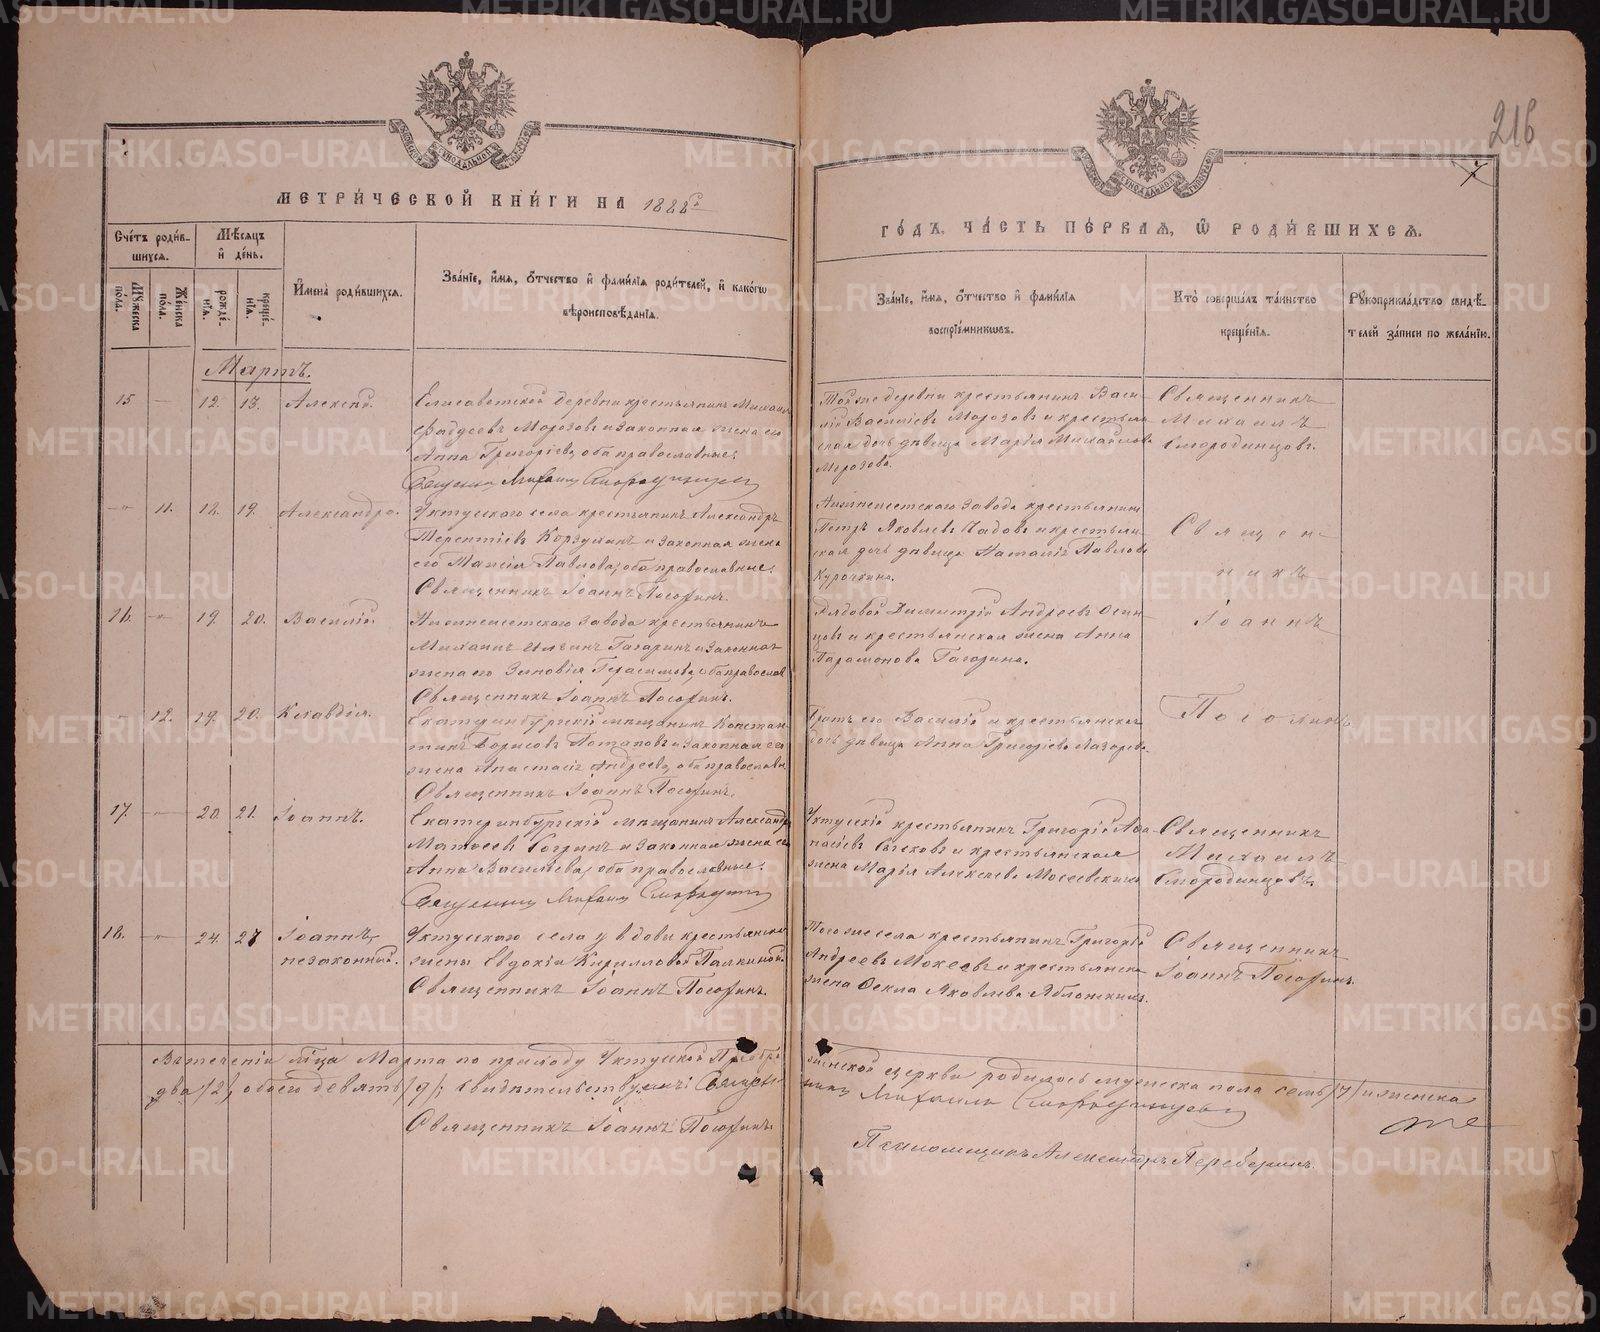 216
7
МЕТРИЧЕСКОЙ КНИГИ НА 1888
ГОДЪ, ЧАСТЬ ПЕРВАЯ, Ѡ РОДИВШИХСЯ.
Счетъ родившихся.
Мужеска пола.
Женска пола.
Мѣсяцъ и день.
рожденія.
крещенія.
Имена родившихся.
Званіе, имя, отчество и фамилія родителей, и какого вѣроисповѣданія.
Званіе, имя, отчество и фамилія воспріемниковъ.
Кто совершалъ таинство крещенія.
Рукоприкладство свидѣтелей записи по желанію.
Мартъ.
15 — 12. 13. Александ.
Елисаветской деревни крестьянинъ Михаил
Фаддеевъ Морозовъ и законная жена его
Анна Григоріева, оба православные.
Священникъ Михаилъ Смородинцевъ
Тойже деревни крестьянинъ Васи-
лій Васильевъ Морозовъ и крестьян
ская дочь дѣвица Марія Михайлова
Морозова.
Священникъ
Михаилъ
Смородинцовъ.
11. 12. 19. Александра.
Уктусскаго села крестьянинъ Александръ
Терентіевъ Корзунинъ и законная жена
его Таисія Павлова, оба православные.
Священникъ Іоаннъ Погоринъ.
Нижнеисетскаго завода крестьянинъ
Петръ Яковлевъ Чадовъ и крестьян-
ская дочь дѣвица Наталія Павлова
Курочкина.
Священ-
никъ
Іоаннъ
16. 19. 20. Василій.
Нижнеисетскаго завода крестьянинъ
Михаилъ Ильинъ Гагаринъ и законная
жена его Зиновія Герасимова, оба православ
Священникъ Іоаннъ Погоринъ.
Рядовой Димитрій Андреевъ Осин
цовъ и крестьянская жена Анна
Парамонова Гагарина.
12. 19. 20. Клавдія.
Екатеринбургскій мѣщанинъ Констан-
тинъ Борисовъ Потаповъ и законная его
жена Анастасія Андреева, оба православны
Священникъ Іоаннъ Погоринъ.
Братъ его Василій и крестьянская
дочь дѣвица Анна Григоріева Лазарева.
17. 20. 21. Іоаннъ.
Екатеринбургскій мѣщанинъ Александръ
Анна Васильева, оба православные.
Священникъ Михаилъ Смородинцевъ
Уктусскій крестьянинъ Григорій Афа-
жена Марія Алексѣева
Священникъ
Михаилъ
Смородинцовъ.
18. 24. 27 Іоаннъ,
незаконный.
Уктусскаго села у вдовы крестьянской
жены Евдокіи Кирилловой Палкиной.
Священникъ Іоаннъ Погоринъ.
Того же села крестьянинъ Григорій
Андреевъ Мокеевъ и крестьянска
жена Ѳекла Яковлева
Священникъ
Іоаннъ Погоринъ.
Въ теченіи м̃ца Марта по приходу Уктусской Преобра
женской церкви родилось мужеска пола семь /7/ и женска
два /2/, обоего девять /9/; свидѣтельствуемъ: Священ
никъ Михаилъ Смородинцевъ
Священникъ Іоаннъ Погоринъ.
Псаломщикъ Александръ
METRIKI.GASO-URAL.RU